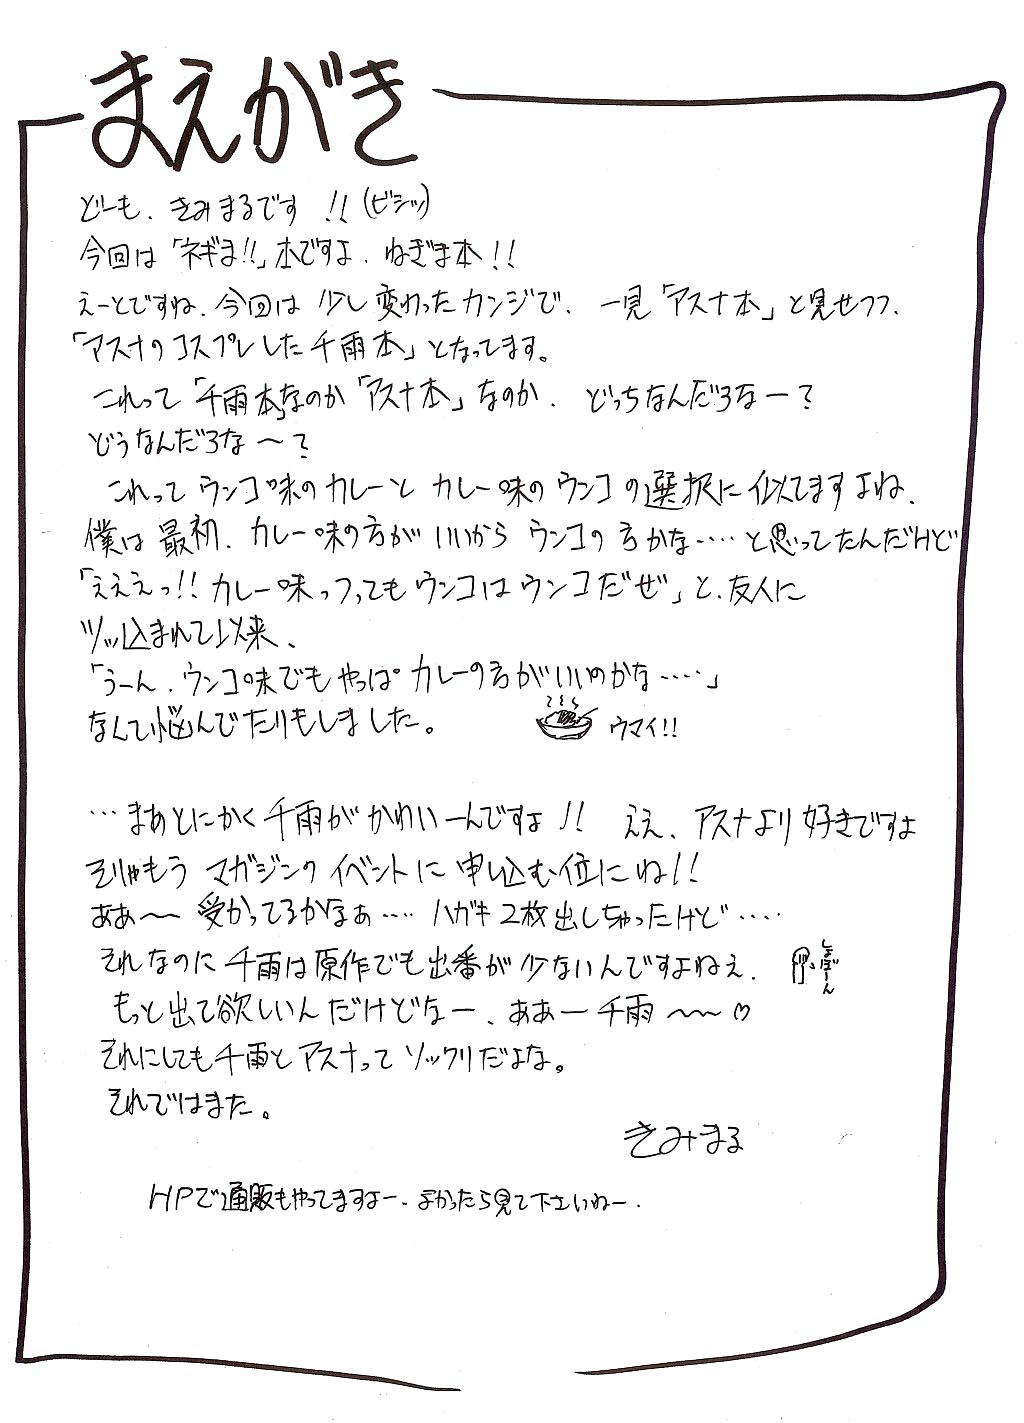 まえがき
どーも、きみまるです!!(ビシッ)
今回は「ネギま!!」本ですよ、ねぎま本!!
えーとですね、今回は少し変わったカンジで、一見「アスナ本」と見せつつ、
「アスナのコスプレした千雨本」となってます。
これって「千雨本」なのか「アスナ本」なのか、どっちなんだろなー?
どうなんだろな〜?
これってウンコ味のカレーとカレー味のウンコの選択に似てますよね、
僕は最初、カレー味の方がいいからウンコの方かな‥‥と思ってたんだけど
「えええっ!!カレー味っつってもウンコはウンコだぜ」と、友人に
ツッ込まれて以来、
「うーん、ウンコ味でもやっぱカレーの方がいいのかな‥‥」
なんて悩んでたりもしました。 ウマイ!!
…まあとにかく千雨がかわいーんですよ!! ええ、アスナより好きですよ
そりゃもうマガジンのイベントに申し込む位にね!!
ああ〜受かってるかなぁ‥‥ハガキ2枚出しちゃったけど‥‥
それなのに千雨は原作でも出番が少ないんですよねぇ、 しょぼーん
もっと出て欲しいんだけどなー、ああー千雨〜〜♡
それにしても千雨とアスナってソックリだよな。
それではまた。
きみまる
HPで通販もやってますよー、よかったら見て下さいねー、